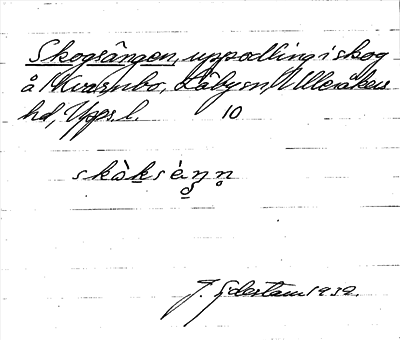 Skogsängen, uppodling i skog
å Kvarnbo, Läby sn, Ulleråkers
hd, Upps. l. 10
skòksèŋ̥n̥
J. Söderstam 1932.